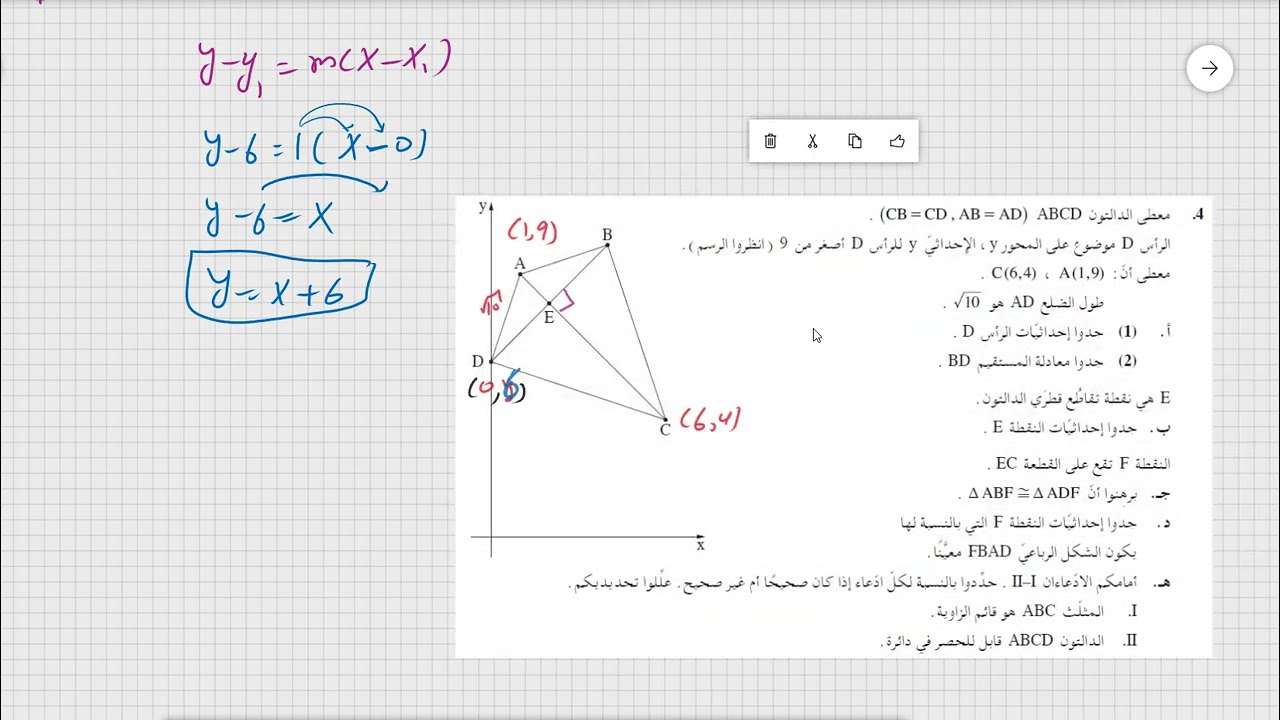 y-y₁ = m(x-x₁)
y-6=1(x-0)
y-6=x
y=x+6
.4 معطى الدالتون ABCD (CB=CD, AB=AD) .
الرأس D موضوع على المحور y ، الإحداثيّ y للرأس D أصغر من 9 (انظروا الرسم).
معطى أنّ: A(1,9) ، C(6,4) .
طول الضلع AD هو √10 .
أ. (1) جدوا إحداثيّات الرأس D .
(2) جدوا معادلة المستقيم BD .
E هي نقطة تقاطُع قطرَي الدالتون.
ب. جدوا إحداثيّات النقطة E .
النقطة F تقع على القطعة EC .
جـ. برهِنوا أنّ Δ ABF ≅ Δ ADF .
د. جدوا إحداثيّات النقطة F التي بالنسبة لها
يكون الشكل الرباعيّ FBAD معيَّنًا.
هـ. أمامكم الادّعاءان I–II . حدِّدوا بالنسبة لكلّ ادّعاء إذا كان صحيحًا أم غير صحيح. علّلوا تحديديكم.
I. المثلّث ABC هو قائم الزاوية.
II. الدالتون ABCD قابل للحصر في دائرة.
y
(1,9)
B
A
√10
E
D
(0,6)
C (6,4)
x